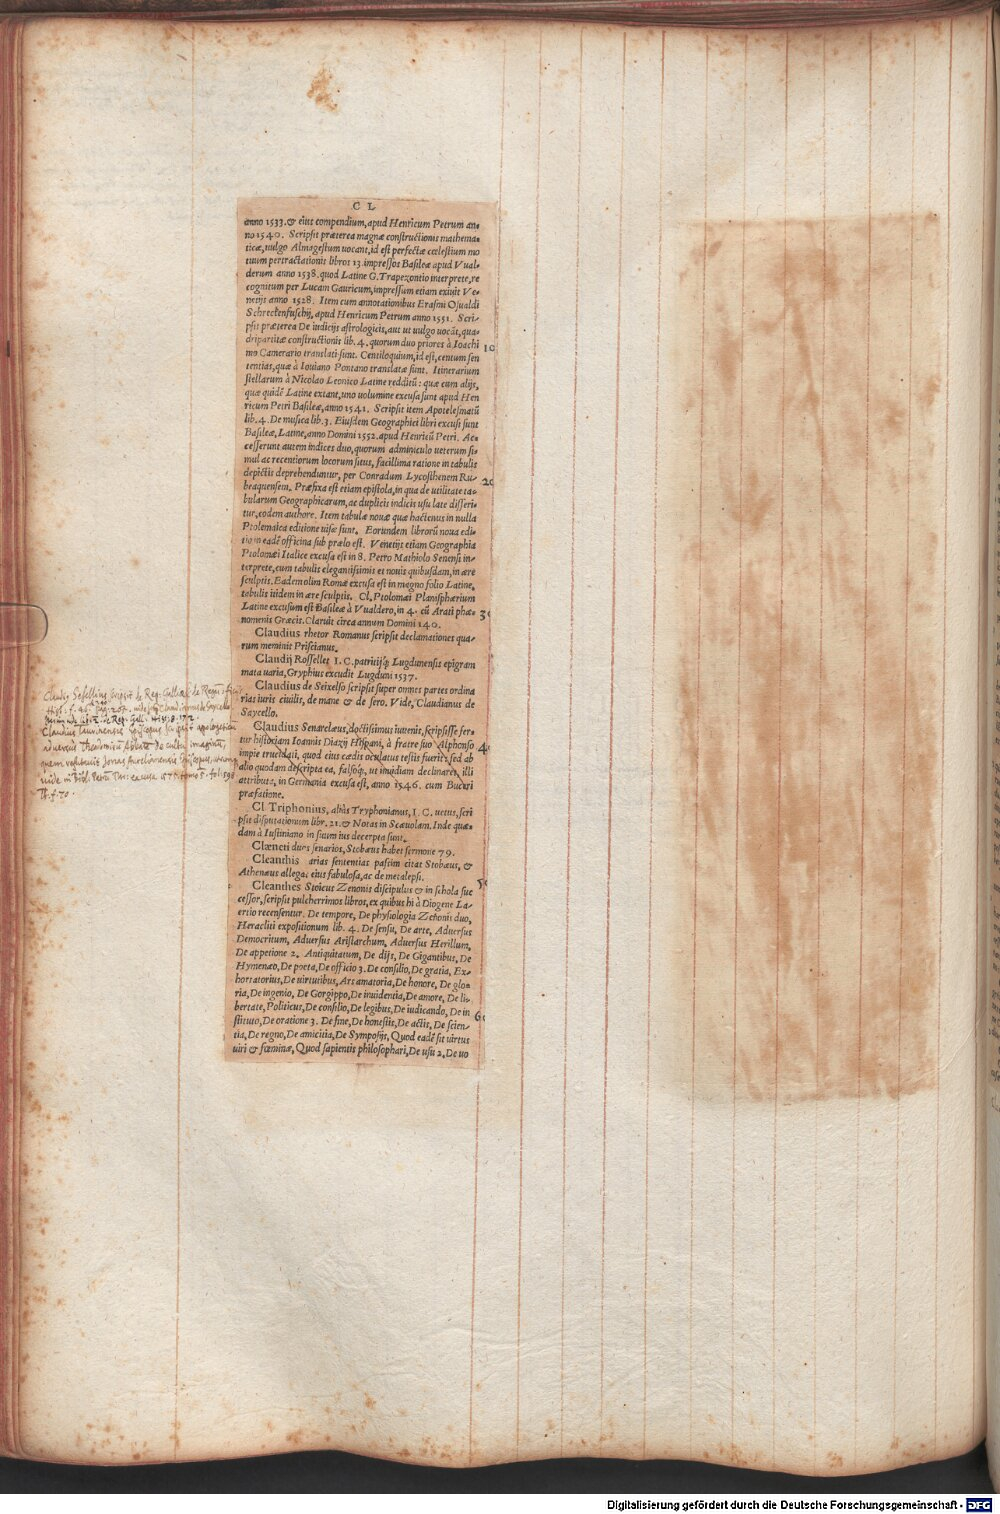 C L
anno 1533. & eius compendium, apud Henricum Petrum an-
no 1540. Scripsit præterea magnæ constructionis mathema-
ticæ, uulgo Almagestum uocant, id est perfectæ cœlestium mo
tuum pertractationis libros 13. impressos Basileæ apud Vual-
derum anno 1538. quod Latine G. Trapezontio interprete, re
cognitum per Lucam Gauricum, impressum etiam exiuit Ve-
netijs anno 1528. Item cum annotationibus Erasmi Osualdi
Schreckenfuschij, apud Henricum Petrum anno 1551. Scri-
psit præterea De iudicijs astrologicis, aut ut uulgo uocāt, qua-
dripartitæ constructionis lib. 4. quorum duo priores à Ioachi 10
mo Camerario translati sunt. Centiloquium, id est, centum sen
tentias, quæ à Iouiano Pontano translatæ sunt. Itinerarium
stellarum à Nicolao Leonico Latine redditū: quæ cum alijs,
quæ quidē Latine extant, uno uolumine excusa sunt apud Hen
ricum Petri Basileæ, anno 1541. Scripsit item Apotelesmatū
lib. 4. De musica lib. 3. Eiusdem Geographici libri excusi sunt
Basileæ, Latine, anno Domini 1552. apud Henricū Petri. Ac-
cesserunt autem indices duo, quorum adminiculo ueterum si-
mul ac recentiorum locorum situs, facillima ratione in tabulis
depictis deprehenduntur, per Conradum Lycosthenem Ru- 20
beaquensem. Præfixa est etiam epistola, in qua de utilitate ta-
bularum Geographicarum, ac duplicis indicis usu late disseri-
tur, eodem authore. Item tabulæ nouæ quæ hactenus in nulla
Ptolemaica editione uisæ sunt. Eorundem librorū noua edi-
tio in eadē officina sub prælo est. Venetijs etiam Geographia
Ptolomæi Italice excusa est in 8. Petro Mathiolo Senensi in-
terprete, cum tabulis elegantissimis et nouis quibusdam, in ære
sculptis. Eadem olim Romæ excusa est in magno folio Latine,
tabulis itidem in ære sculptis. Cl. Ptolomæi Planisphærium
Latine excusum est Basileæ à Vualdero, in 4. cū Arati phæ- 30
nomenis Græcis. Claruit circa annum Domini 140.
Claudius rhetor Romanus scripsit declamationes qua-
rum meminit Priscianus.
Claudij Rosseilet I. C. patricijq; Lugdunensis epigram
mata uaria, Gryphius excudit Lugduni 1537.
Claudius de Seixelso scripsit super omnes partes ordina
rias iuris ciuilis, de mane & de sero. Vide, Claudianus de
Saycello.
Claudius Senarclæus, doctissimus iuuenis, scripsisse fer-
tur historiam Ioannis Diazij Hispani, à fratre suo Alphonso 4
impie trucidati, quod eius cædis oculatus testis fuerit: sed ab
alio quodam descripta ea, falsoq́;, ut inuidiam declinaret, illi
attributa, in Germania excusa est, anno 1546. cum Buceri
præfatione.
Cl Triphonius, aliâs Tryphonianus, I. C. uetus, scri
psit disputationum libr. 21. & Notas in Scæuolam. Inde quæ-
dam à Iustiniano in suum ius decerpta sunt.
Clæneti duos senarios, Stobæus habet sermone 79.
Cleanthis arias sententias passim citat Stobæus, &
Athenæus allegat eius fabulosa, ac de metalepsi. 5
Cleanthes Stoicus Zenonis discipulus & in schola suc
cessor, scripsit pulcherrimos libros, ex quibus hi à Diogene La-
ertio recensentur. De tempore, De physiologia Zenonis duo,
Heracliti expositionum lib. 4. De sensu, De arte, Aduersus
Democritum, Aduersus Aristarchum, Aduersus Herillum,
De appetione 2. Antiquitatum, De dijs, De Gigantibus, De
Hymenæo, De poeta, De officio 3. De consilio, De gratia, Ex-
hortatorius, De uirtutibus, Ars amatoria, De honore, De glo-
ria, De ingenio, De Gorgippo, De inuidentia, De amore, De li-
bertate, Politicus, De consilio, De legibus, De iudicando, De in 6
stituto, De oratione 3. De fine, De honestis, De actis, De scien-
tia, De regno, De amicitia, De Symposijs, Quod eadē sit uirtus
uiri & fœminæ, Quod sapientis philosophari, De usu 2. De uo
Claudius Sesellius scripsit de Rep. Galliae & de Regum officijs
Claudius Taurinensis Episcopus scripsit apologeticum
aduersus Theodomirum Abbatem De cultu imaginum,
quem refutauit Jonas Aurelianensis Episcopus,
uide in Bibl. Patrum excusa 1575. tomo 5. fol. 598
Th. f. 70.
Digitalisierung gefördert durch die Deutsche Forschungsgemeinschaft - DFG